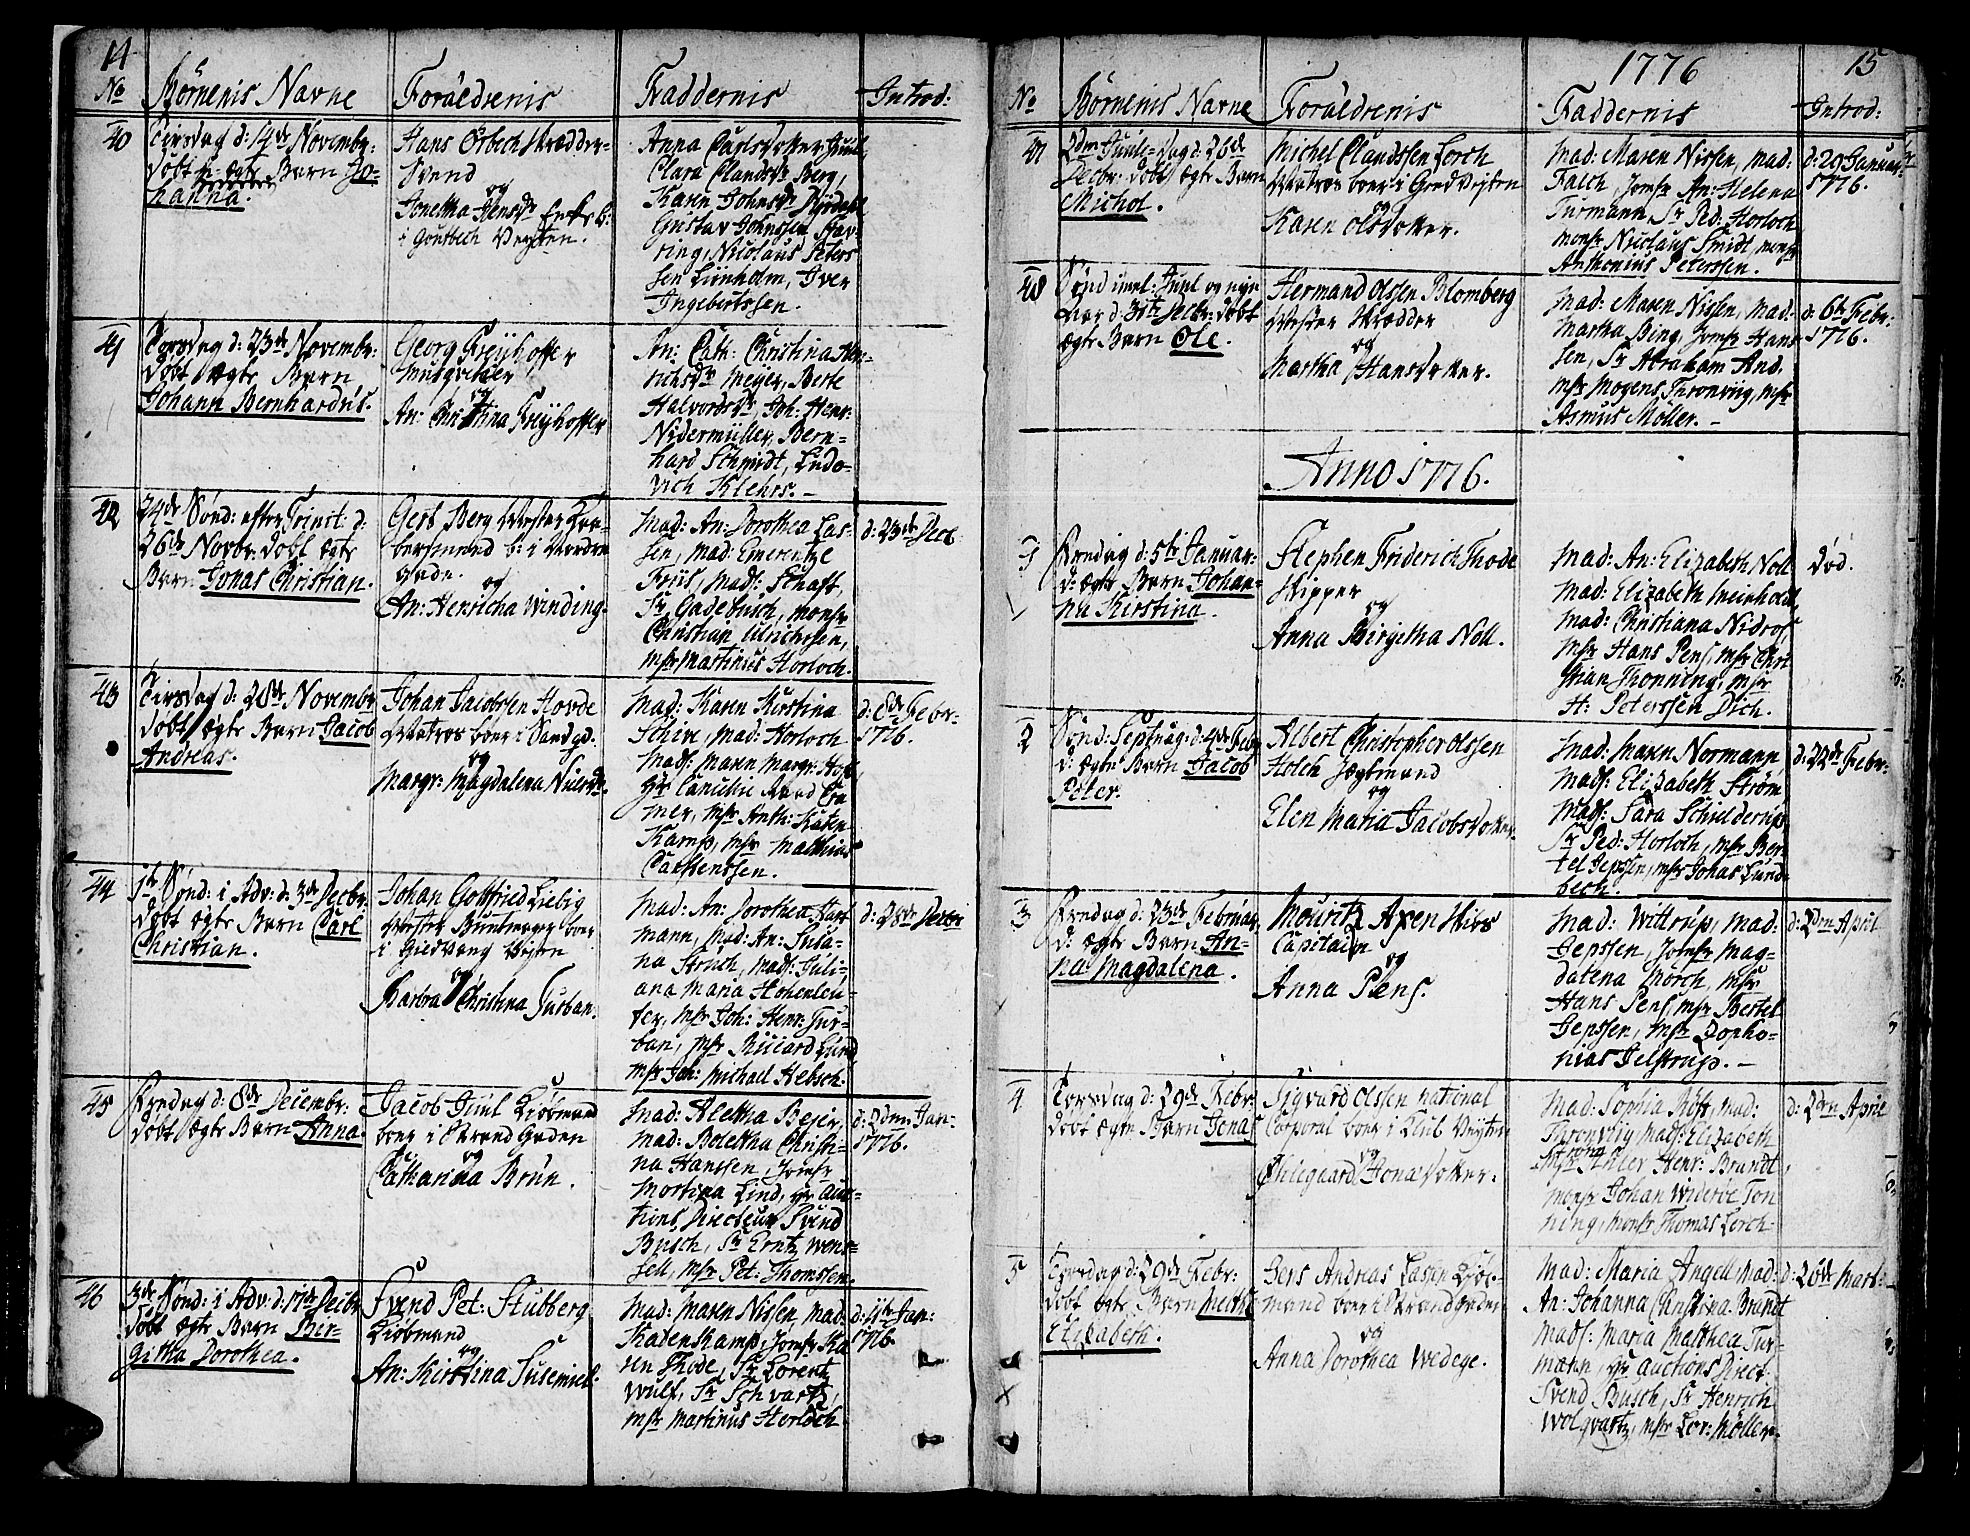 14
No Börnenis Navne Foräldrenis Faddernis Introd:
40 Tirsdag d: 14de Novembr: döbt u-ægte Barn Jo-
hanna.
Hans Örbech Skrædder-
Svend
og
Jonetha Jensdr Enke b:
i Goutbech Veyten.
Anna Carlsdotter Juul
Clara Claudsdr Berg,
Karen Johnsdr Dyrdahl
Gustav Johnssen Hav-
ring, Nicolaus Peters
sen Lijnholm, Iver
Ingebertssen.
41 Torsdag d: 23de Novembr:
döbt ægte Barn
Johann Bernhardus.
Georg Freyhoffer
Musqveteer
og
An: Christina Freyhoffer
An: Cath: Christina Hen-
richsdr Meyer, Berte
Halvordsdr, Joh: Henr:
Nidermüller, Bern-
hard Schmidt, Ludo-
vich Klehrs.-
42 24de Sönd: efter Trinit: d:
26de Novbr: döbt ægte
Barn Jonas Christian.
Gert Berg Mester Far-
bersmand b: i Nordre
gade.
og
An: Henricha Winding.
Mad: An: Dorothea Las-
sen, Mad: Emerentze
Friis, Mads: Schaft,
Sr Gadebusch, Monsr
Christian Ulrichssen,
Msr Martinus Horloch.
d: 23de Decb
43 Tirsdag d: 28de Novembr
döbt ægte Barn Jacob
Andreas.
Johan Jacobssen Hovde
Matros boer i Sandgd:
og
Margr: Magdalena Nielsdr.
Mad: Karen Kirstina
Schive, Mad: Horloch
Mads: Maren Margr: Holst,
Hr Cancelie Raad Cra
mer, Msr Anth: Katen
Kamp, Msr Matthias
Carstenssen.
d: 8de Febr:
1776.
44 1te Sönd: i Adv: d: 3de Decbr
döbt ægte Barn Carl
Christian.
Johan Gottfried Liebig
Mester Buntmager boer
i Giedvang Veyten
og
Barbra Christina Turban.
Mad: An: Dorothea Hart
mann, Mad: An: Susa-
na Struch, Mads: Juli-
ana Maria Hohenleu-
ter, Msr Joh: Henr: Tur-
ban, Msr Riccard Lund
Msr Joh: Michael Hebsch.
d: 28de Decbr
45 Fredag d: 8de Decembr:
döbt ægte Barn Anna.
Jacob Juul Kiöbmand
boer i Strand Gaden
og
Catharina Brun.
Mad: Alethea Bejer,
Mad: Bolethа Christi-
na Hanssen, Jomfr
Mortina Lind, Hr Auc-
tions Directeur Svend
Busch, Sr Erntz Wens-
sell, Msr Pet: Thomssen.
d: 2den Jan-
1776.
46 3de Sönd: i Adv: d: 17de Decbr
döbt ægte Barn Bir-
githa Dorothea.
Svend Pet: Stubberg
Kiöbmand
og
An: Kirstina Susemiel.
Mad: Maren Nissen, Mad:
Katenskamp, Jomfr Ka
ren Thode, Sr Lorentz
Wulf, Sr Schvartz,
Msr Martinus Horloch.
d: 11te Jan:
1776.
1776 15
No Börnenis Navne Foräldrenis Faddernis Introd:
47 2den Juule-Dag d: 26de
Decbr: döbt ægte Barn
Michel.
Michel Claudssen Lorch
Matros boer i Grevveyten
og
Karen Olsdotter.
Mad: Maren Nissen, Mad:
Falch, Jomfr An: Helena
Turmann, Sr Ped: Horloch
Monsr Nicolaus Smidt, Monsr
Anthonius Peterssen.
d: 29 Januar:
1776.
48 Sönd imel: Juul og nyt
Aar d: 31te Decbr: döbt
ægte Barn Ole.
Hermand Olssen Blomberg
Mester Skrædder
og
Martha Hansdotter.
Mad: Maren Nissen, Mad:
Martha Bing, Jomfr Hans-
sen, Sr Abraham And.
Msr Mogens Thronviig, Msr
Asmus Möller.-
d: 6te Febr:
1776.
Anno 1776.
1 Fredag d: 5te Januar:
d: ægte Barn Johan-
na Kirstina.
Stephen Friderich Thode
Skipper
og
Anna Birgetha Noll.
Mad: An: Elizabeth Noll
Mad: Elizabeth Meinholdt,
Mad: Christiana Nidros
Msr Hans Pens, Msr Chri
stian Thonning, Msr
H: Peterssen Dich.
död.
2 Sönd: Septuag: d: 4de Febr
d: ægte Barn Jacob
Peter.
Albert Christopher Olssen
Holch Jægtmand
og
Elen Maria Jacobsdotter.
Mad: Maren Normann,
Mads: Elizabeth Ström
Mads: Sara Schielderup,
Sr Ped: Horloch, Msr Ber-
tel Jepssen, Msr Johas Lund-
bech.
d: 22de Febr:
3 Fredag d: 23de Februar:
d: ægte Barn An-
na Magdalena.
Mouritz Axen Hiers
Capitain
og
Anna Pens.
Mad: Wittrup, Mad:
Jepssen, Jomfr Mag-
dalena Morch, Msr
Hans Pens, Msr Bertel
Jepssen, Msr Zopho-
nias Jelstrup.-
d: 2den April
4 Torsdag d: 29de Febr:
döbt ægte Barn Jonas
Sigvard Olssen National
Corporal boer i Klub Veyten
og
Ohlegaard Jonasdotter.
Mad: Sophia Röst, Mad:
Thronviig Mads: Elizabeth
Trong
Msr Henr: Brandt,
Monsr Johan Wideröe Ton
ning, Monsr Thomas Lorch-
d: 2den April
5 Torsdag d: 29de Febr:
döbt ægte Barn Methe
Elizabeth.
Jens Andreas Lasen Kiöb-
mand boer i Strandgaden
og
Anna Dorothea Wedege.
Mad: Maria Angell Mad:
An: Johanna Christina Brandt
Mads: Maria Matthea Tur-
mann, Hr Auctions Direct:
Svend Busch, Sr Henrich
Wolqvartz, Msr Lor: Möller.
d: 26de Mart: